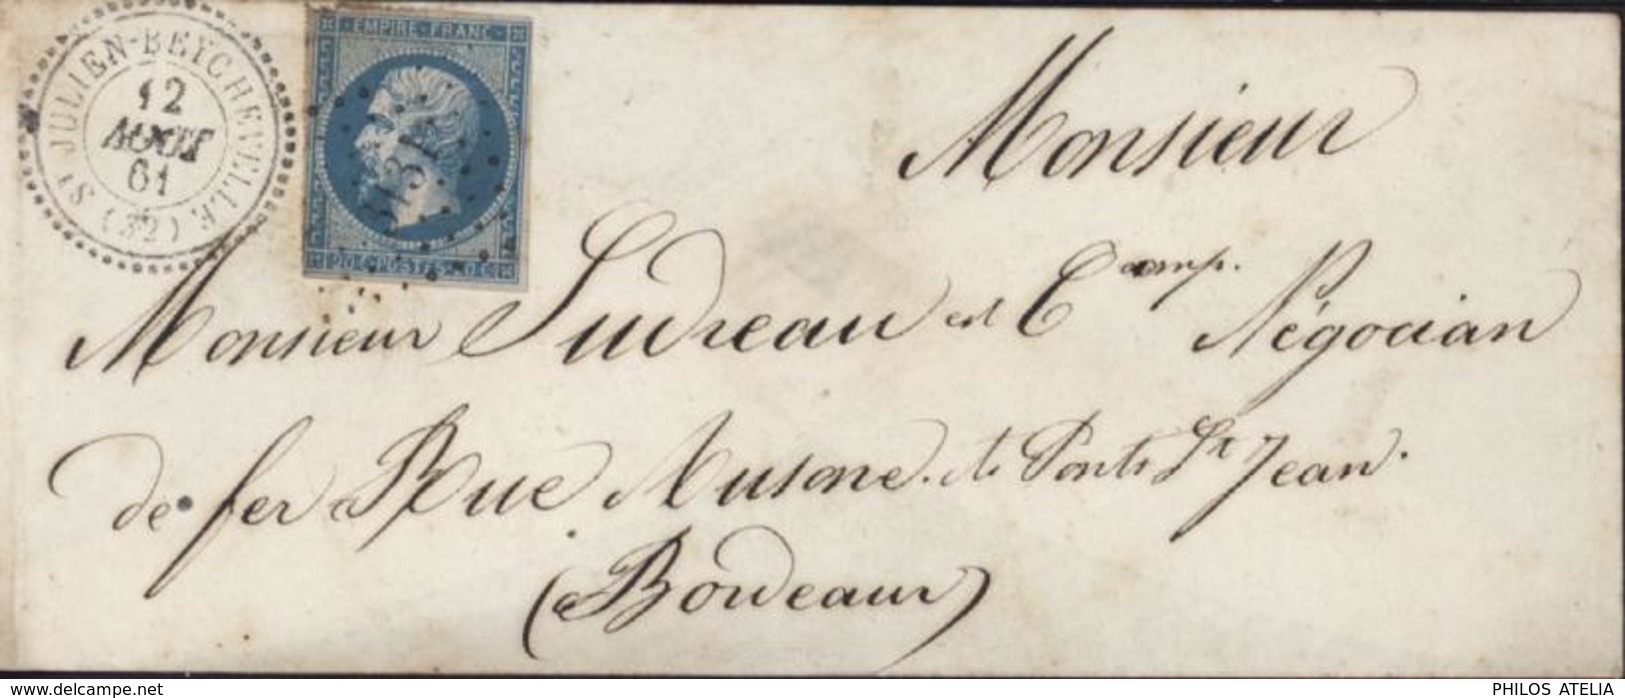 ST JULIEN-BEYCHEVELLE (32)
12
AOUT
61
EMPIRE FRANC
20 C POSTES 20 C
Monsieur
Monsieur Sudreau et Comp. Négocian
de fer Rue Ausone. et Ponts St Jean.
(Bordeaux)
www.delcampe.net
PHILOS ATELIA